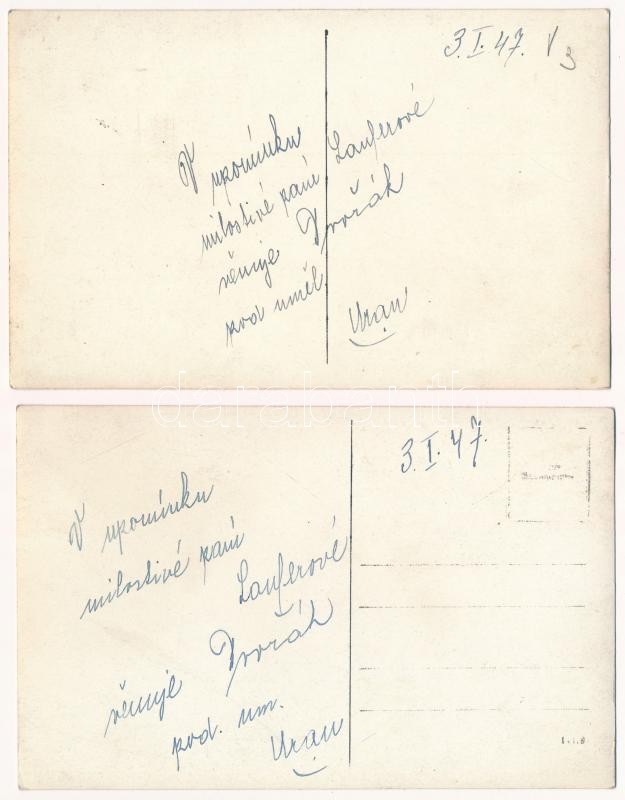 3.I.47. V
3
V upomínku
milostivé paní Lauferové
věnuje Dvořák
pod uměl.
Uran
darabanth
3.I.47.
V upomínku
milostivé paní
Lauferové
věnuje Dvořák
pod. um.
Uran